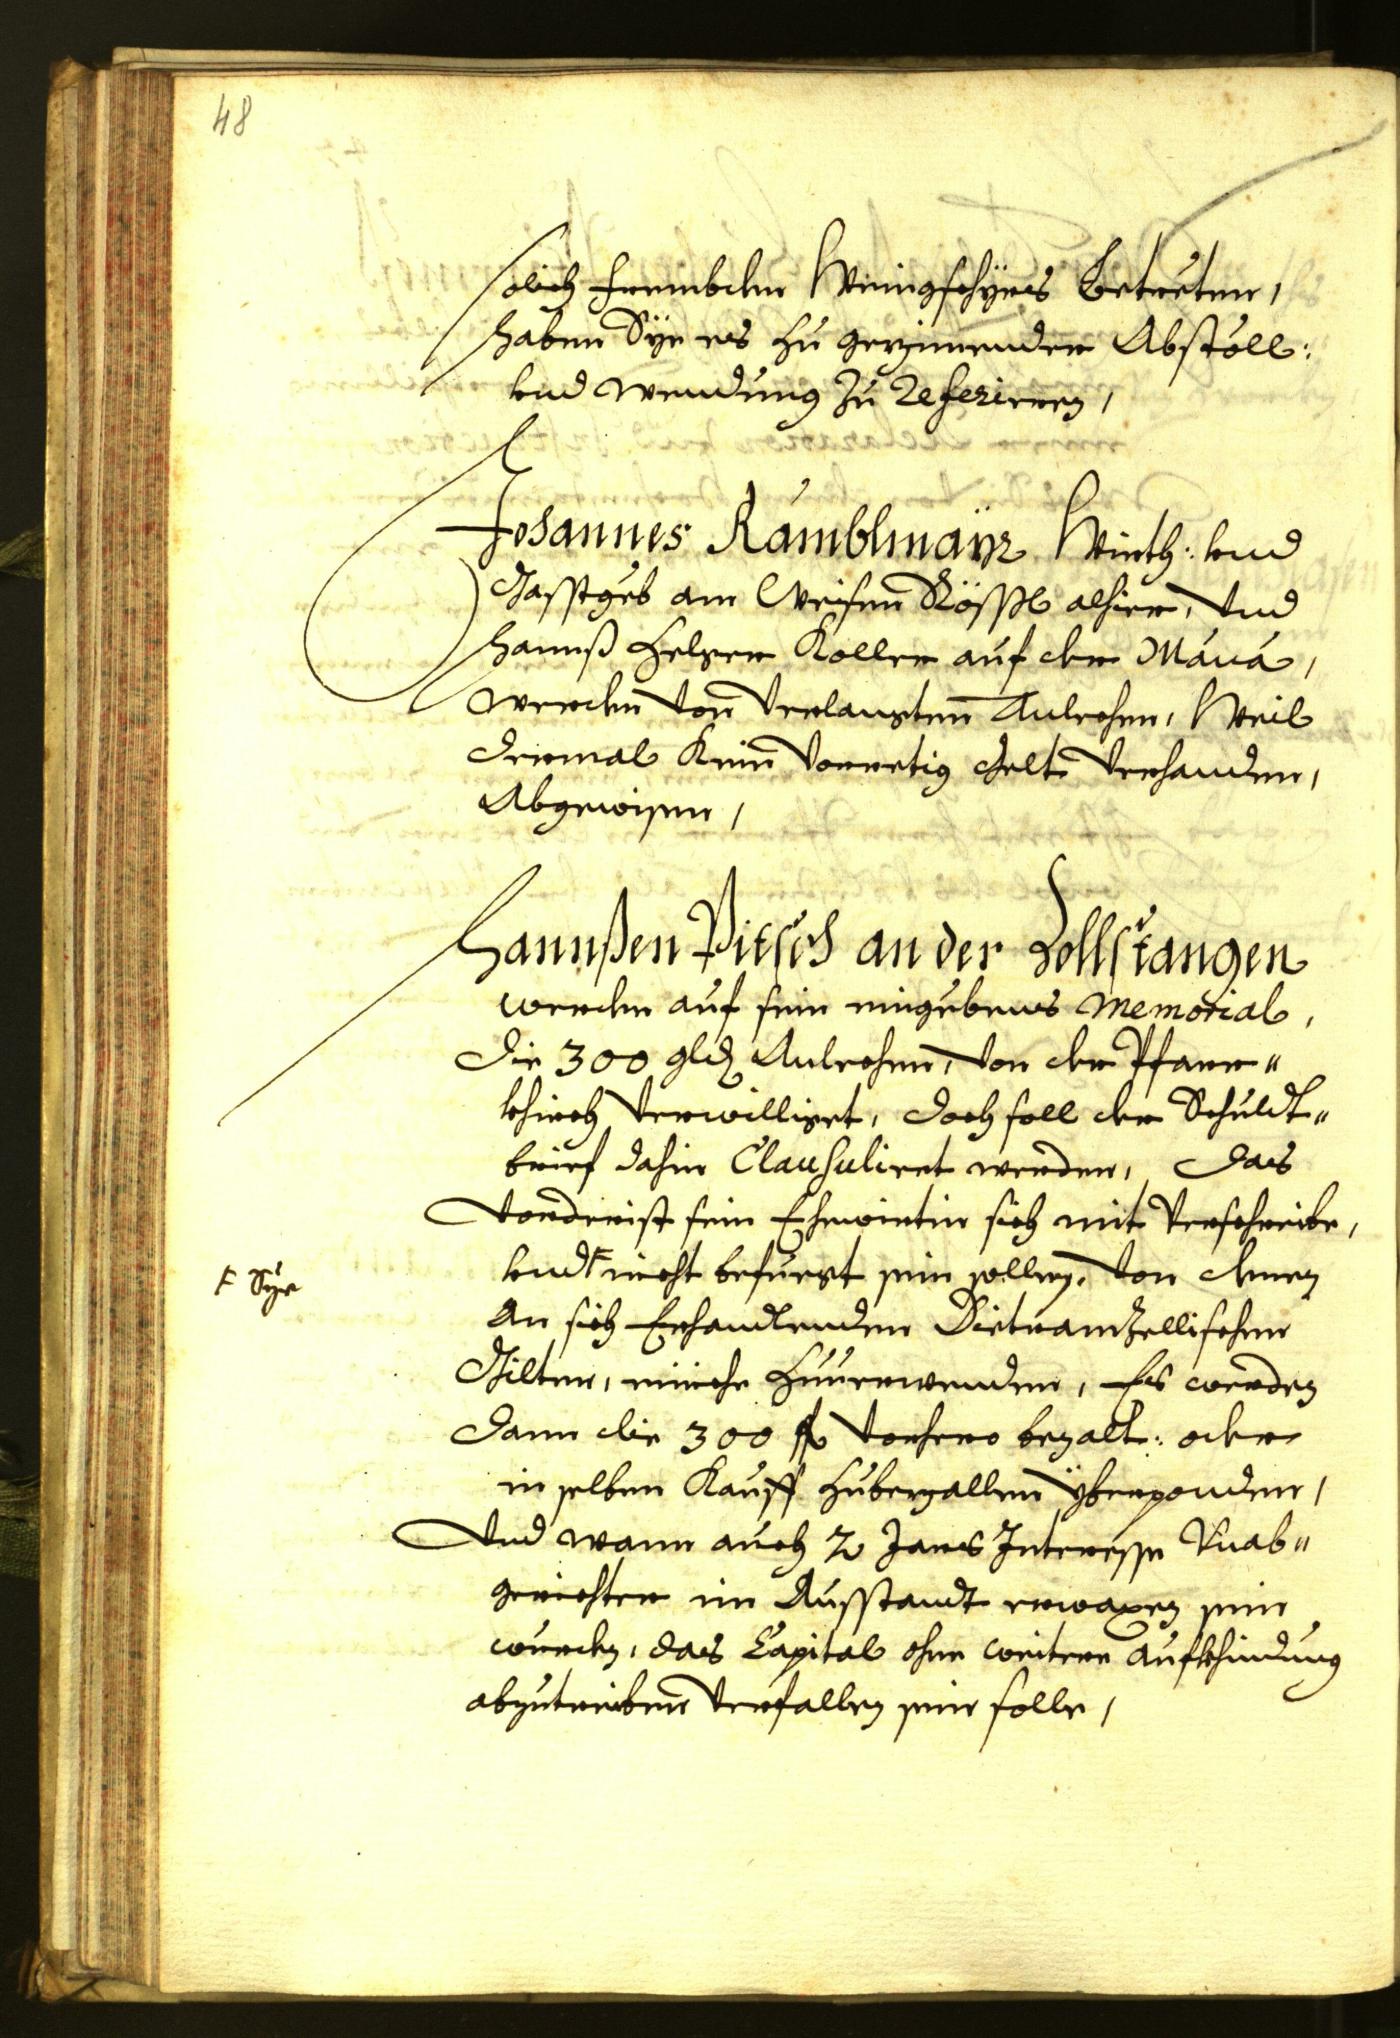 48
solich frembden Weingschÿrs betretten,
haben Sÿe es zu gezimender Abstöll:
vnd wendung zu Referiren,
Johannes Ramblmaÿr Wirth: vnd
Gasstgeb am Weisen Rössl alhier, vnd
Hannß Holzer Koller auf der
werden von verlangten Anlechen, Weil
dermal Kein vorretig Gelt verhanden,
Abgewisen,
Hannßen Pitsch an der Zollstangen
werden auf sein eingebenes Memorial,
die 300 gld Anlechen, von der Pfarr"
khirch verwilliget, doch soll der Schuldt"
brief dahin Clausuliret werden, das
vorderist sein Ehewirtin sich mit verschreibe,
vnd F nicht befuegt sein sollen, von denen
F Sÿe
An sich Erhandlenden Dietramzellischen
Gilten, zuuerwenden, Es werden
dann die 300 fl vorhero bezalt: oder
in selben Kauff zubezallen ÿberpunden,
Vnd wann auch 2 Jares Interesse Vnab"
gerichter im Ausstandt erwaxen sein
wurden, das Capital ohne weitere aufkhindung
abzutreiben verfallen sein solle,